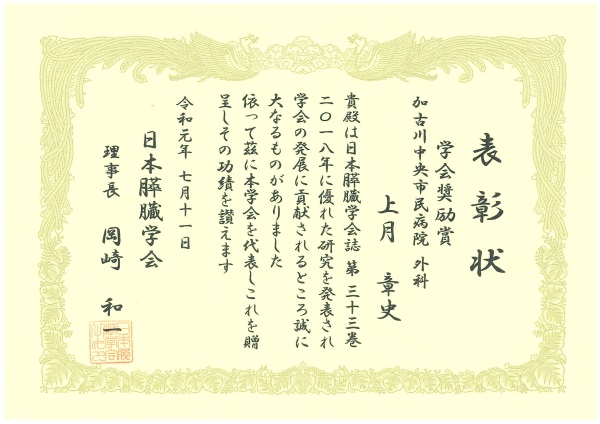 表彰状
学会奨励賞
加古川中央市民病院 外科
上月 章史
貴殿は日本膵臓学会誌 第 三十三巻
二〇一八年に優れた研究を発表され
学会の発展に貢献されるところ誠に
大なるものがありました
依って茲に本学会を代表しこれを贈
呈しその功績を讃えます
令和元年 七月十一日
日本膵臓学会
理事長 岡崎 和一